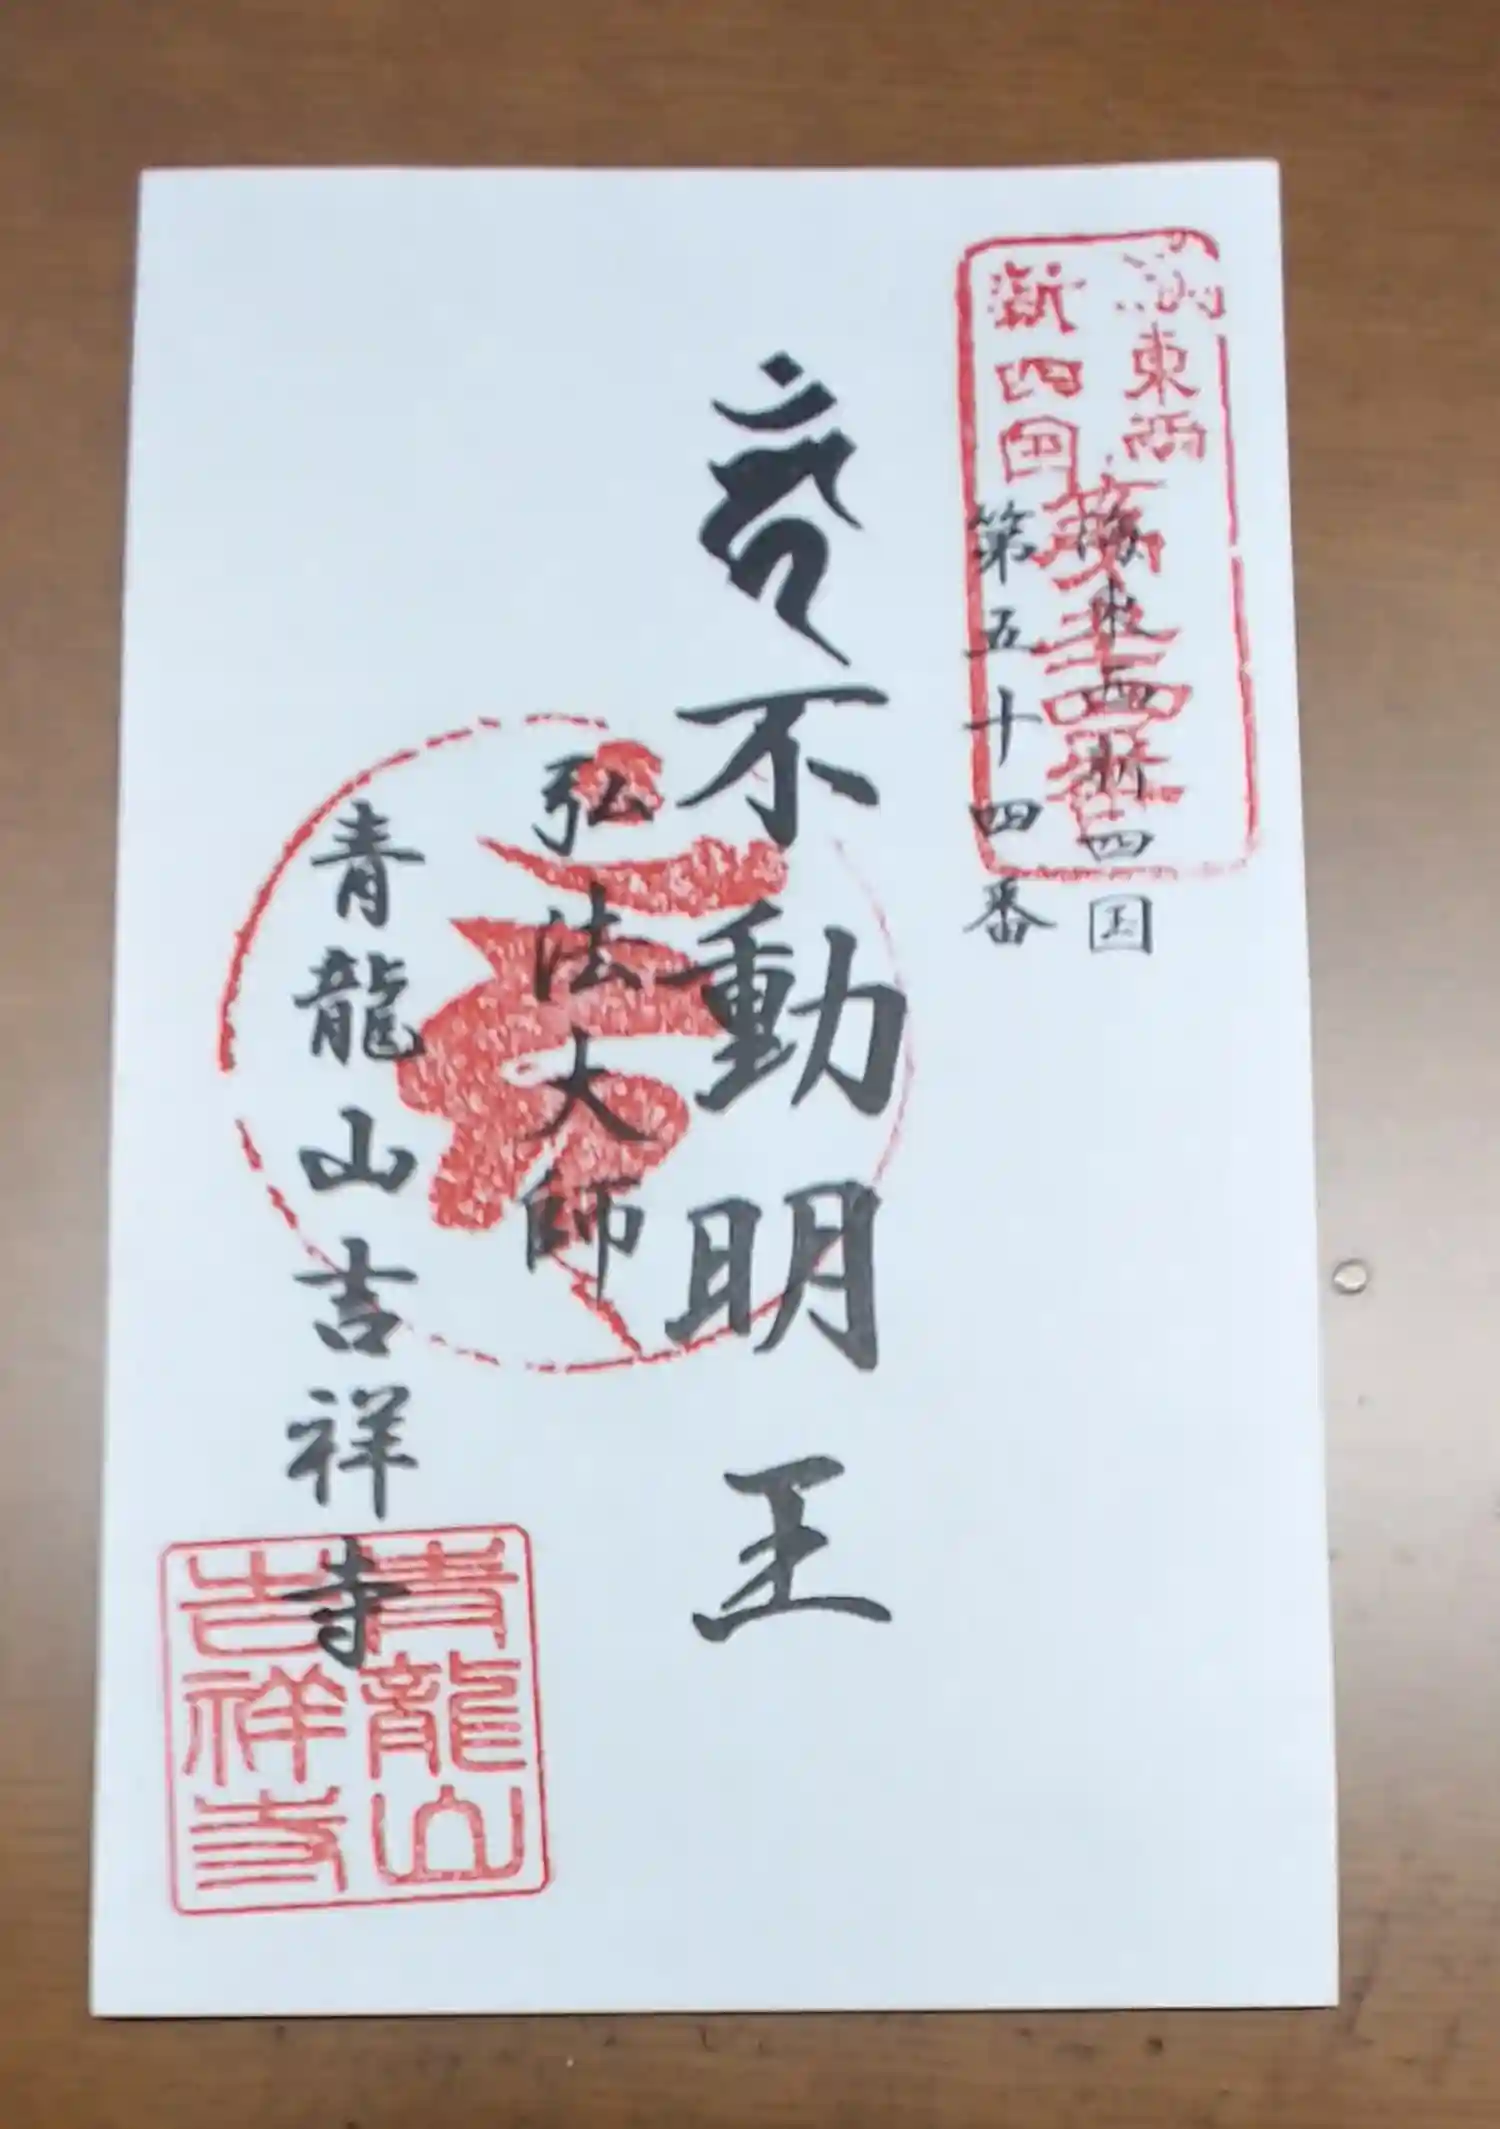 海東西新四国
第五十四番
東西
新四国
不動明王
弘法大師
青龍山吉祥寺
青龍山
吉祥寺